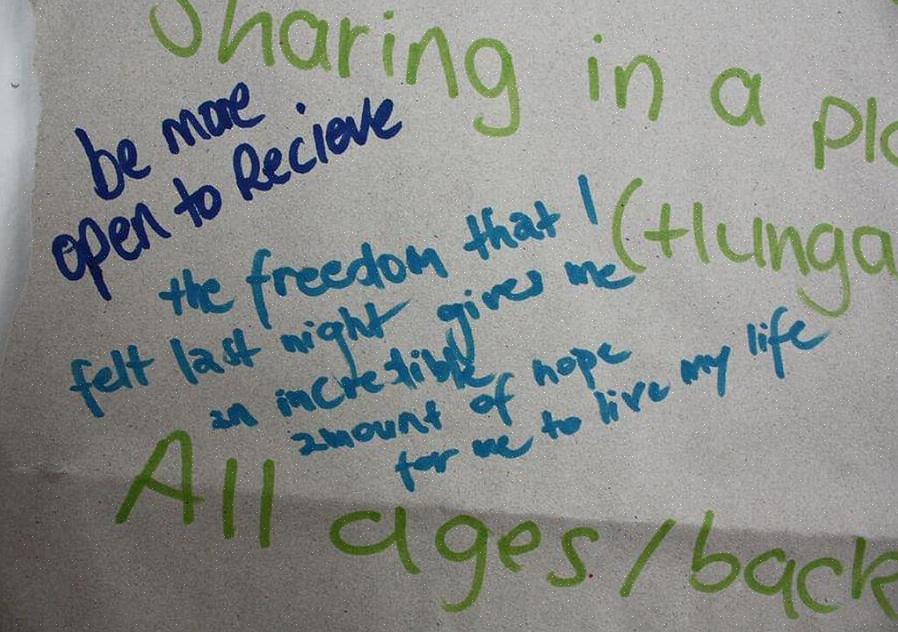 Sharing in a pla
be more
open to Recieve
(Hunga
the freedom that I
felt last night gives me
an incredible
amount of hope
for me to live my life
All ages/back